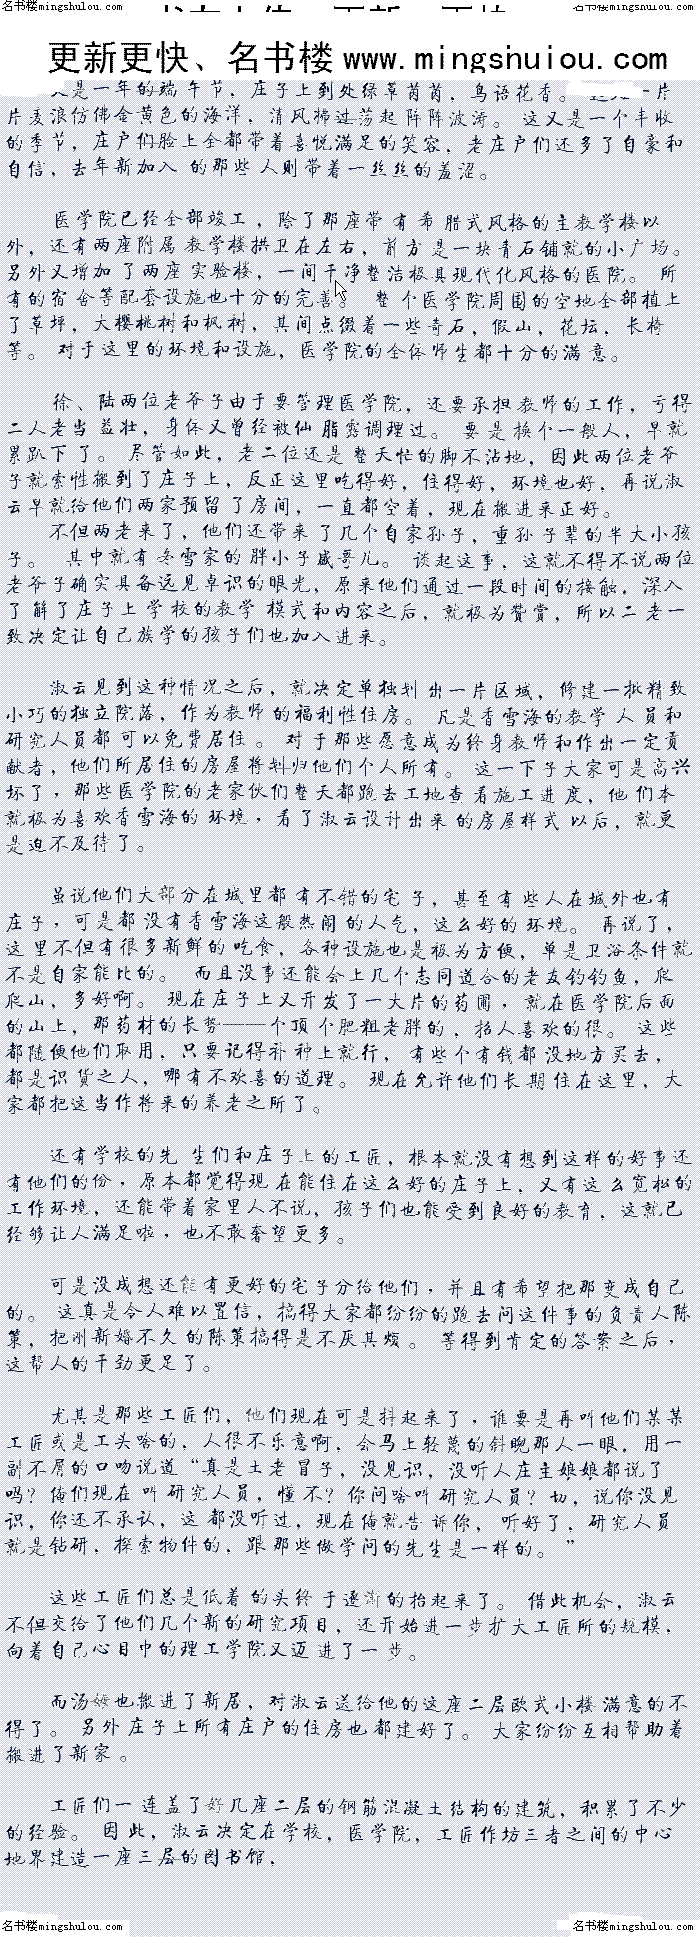 名书楼mingshulou.com 名书楼mingshulou.com
更新更快、名书楼 www.mingshulou.com
又是一年的端午节，庄子上到处绿草茵茵，鸟语花香。 一片
片麦浪仿佛金黄色的海洋，清风拂过荡起阵阵波涛。 这又是一个丰收
的季节，庄户们脸上全都带着喜悦满足的笑容，老庄户们还多了自豪和
自信，去年新加入 的那些人则带着一丝丝的羞涩。
医学院已经全部竣工，除了那座带有希腊式风格的主教学楼以
外，还有两座附属教学楼拱卫在左右，前方是一块青石铺就的小广场。
另外又增加了两座实验楼，一间干净整洁极具现代化风格的医院。 所
有的宿舍等配套设施也十分的完善。 整个医学院周围的空地全部植上
了草坪，大樱桃树和枫树，其间点缀着一些奇石，假山，花坛，长椅
等。 对于这里的环境和设施，医学院的全体师生都十分的满意。
徐、陆两位老爷子由于要管理医学院，还要承担教师的工作，亏得
二人老当益壮，身体又曾经被仙脂露调理过。 要是换个一般人，早就
累趴下了。 尽管如此，老二位还是整天忙的脚不沾地，因此两位老爷
子就索性搬到了庄子上，反正这里吃得好，住得好，环境也好，再说淑
云早就给他们两家预留了房间，一直都空着，现在搬进来正好。
不但两老来了，他们还带来了几个自家孙子，重孙子辈的半大小孩
子。 其中就有冬雪家的胖小子威哥儿。 谈起这事，这就不得不说两位
老爷子确实具备远见卓识的眼光，原来他们通过一段时间的接触，深入
了解了庄子上学校的教学模式和内容之后，就极为赞赏，所以二老一
致决定让自己族学的孩子们也加入进来。
淑云见到这种情况之后，就决定单独划出一片区域，修建一批精致
小巧的独立院落，作为教师的福利性住房。 凡是香雪海的教学人员和
研究人员都可以免费居住。 对于那些愿意成为终身教师和作出一定贡
献者，他们所居住的房屋将划归他们个人所有。 这一下子大家可是高兴
坏了，那些医学院的老家伙们整天都跑去工地查看施工进度，他们本
就极为喜欢香雪海的环境，看了淑云设计出来的房屋样式以后，就更
是迫不及待了。
虽说他们大部分在城里都有不错的宅子，甚至有些人在城外也有
庄子，可是都没有香雪海这般热闹的人气，这么好的环境。 再说了，
这里不但有很多新鲜的吃食，各种设施也是极为方便，单是卫浴条件就
不是自家能比的。 而且没事还能会上几个志同道合的老友钓钓鱼，爬
爬山，多好啊。 现在庄子上又开发了一大片的药圃，就在医学院后面
的山上，那药材的长势——一个顶个肥粗老胖的，招人喜欢的很。 这些
都随便他们取用，只要记得补种上就行，有些个有钱都没地方买去，
都是识货之人，哪有不欢喜的道理。 现在允许他们长期住在这里，大
家都把这当作将来的养老之所了。
还有学校的先生们和庄子上的工匠，根本就没有想到这样的好事还
有他们的份，原本都觉得现在能住在这么好的庄子上，又有这么宽松的
工作环境，还能带着家里人不说，孩子们也能受到良好的教育，这就已
经够让人满足啦，也不敢奢望更多。
可是没成想还能有更好的宅子分给他们，并且有希望把那变成自己
的。 这真是令人难以置信，搞得大家都纷纷的跑去问这件事的负责人陈
策，把刚新婚不久的陈策搞得是不厌其烦。 等得到肯定的答案之后，
这帮人的干劲更足了。
尤其是那些工匠们，他们现在可是抖起来了，谁要是再叫他们某某
工匠或是工头啥的，人很不乐意啊，会马上轻蔑的斜睨那人一眼，用一
副不屑的口吻说道“真是土老冒子，没见识，没听人庄主娘娘都说了
吗？俺们现在叫研究人员，懂不？你问啥叫研究人员？切，说你没见
识，你还不承认，这都没听过，现在俺就告诉你，听好了，研究人员
就是钻研，探索物件的，跟那些做学问的先生是一样的。”
这些工匠们总是低着的头终于逐渐的抬起来了。 借此机会，淑云
不但交给了他们几个新的研究项目，还开始进一步扩大工匠所的规模，
向着自己心目中的理工学院又迈进了一步。
而汤婶也搬进了新居，对淑云送给他的这座二层欧式小楼满意的不
得了。 另外庄子上所有庄户的住房也都建好了。 大家纷纷互相帮助着
搬进了新家。
工匠们一连盖了好几座二层的钢筋混凝土结构的建筑，积累了不少
的经验。 因此，淑云决定在学校，医学院，工匠作坊三者之间的中心
地界建造一座三层的图书馆，
名书楼mingshulou.com 名书楼mingshulou.com